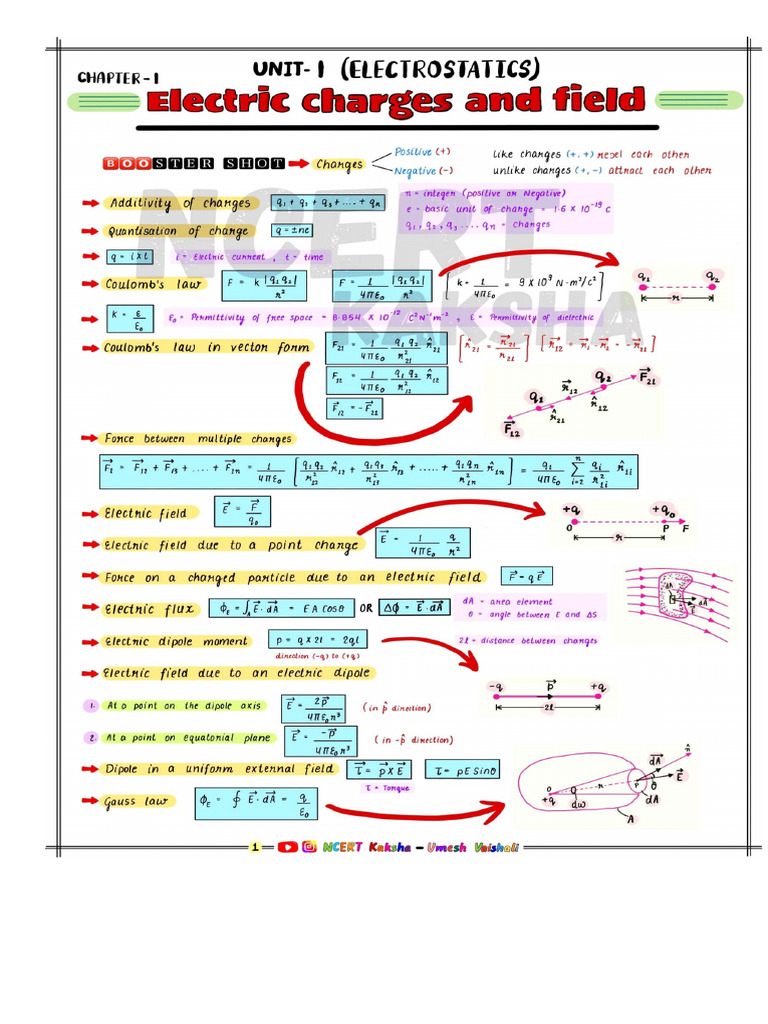 UNIT-1 (ELECTROSTATICS)
CHAPTER-1
Electric charges and field
BOOSTER SHOT Charges
Positive (+)
Negative (-)
like charges (+,+) repel each other
unlike charges (+,-) attract each other
NCERT
KAKSHA
Additivity of charges q₁ + q₂ + q₃ + .... + qₙ
n = integer (positive or Negative)
e = basic unit of charge = 1.6 X 10⁻¹⁹ C
q₁, q₂, q₃ .... qₙ = Charges
Quantisation of charge q = ±ne
q = i X t i = Electric current , t = time
Coulomb's law F = k |q₁q₂| / r² F = 1/4πε₀ |q₁q₂| / r² [k = 1/4πε₀ = 9 X 10⁹ N·m²/c²]
q₁ q₂
r
k = ε/ε₀ ε₀ = Permittivity of free space = 8.854 X 10⁻¹² C²N⁻¹m⁻² , ε = Permittivity of dielectric
Coulomb's law in vector form F₂₁ = 1/4πε₀ q₁q₂/r²₂₁ r̂₂₁ [r̂₂₁ = r⃗₂₁/r₂₁] [r⃗₁₂ = r⃗₁ - r⃗₂ = -r⃗₂₁]
F₁₂ = 1/4πε₀ q₁q₂/r²₁₂ r̂₁₂
F⃗₁₂ = -F⃗₂₁
q₂ F⃗₂₁
r⃗₁₂
q₁ r̂₁₂
r̂₂₁
F⃗₁₂
Force between multiple charges
F⃗₁ = F⃗₁₂ + F⃗₁₃ + .... + F⃗₁ₙ = 1/4πε₀ [q₁q₂/r²₁₂ r̂₁₂ + q₁q₃/r²₁₃ r̂₁₃ + ..... + q₁qₙ/r²₁ₙ r̂₁ₙ] = q₁/4πε₀ Σⁿᵢ₌₂ qᵢ/r²₁ᵢ r̂₁ᵢ
Electric field E⃗ = F⃗/q₀
+q +q₀
O P F
r
Electric field due to a point charge E⃗ = 1/4πε₀ q/r²
Force on a charged particle due to an electric field F⃗ = q E⃗
Electric flux ϕE = ∫A E⃗·dA⃗ = E A cosθ OR Δϕ = E⃗·dA⃗
dA = area element
θ = angle between E and ΔS
dA
dA⃗
E⃗
Electric dipole moment p = q X 2l = 2ql 2l = distance between charges
direction (-q) to (+q)
Electric field due to an electric dipole
-q p⃗ +q
2l
1. At a point on the dipole axis E⃗ = 2p⃗/4πε₀r³ (in p̂ direction)
2. At a point on equatorial plane E⃗ = -p⃗/4πε₀r³ (in -p̂ direction)
Dipole in a uniform external field τ⃗ = p⃗ X E⃗ τ = pE Sinθ
τ = Torque
Gauss law ϕE = ∮ E⃗·dA⃗ = q/ε₀
n̂
dA⃗
E⃗
θ
P
O r
+q dω dA
A
1 NCERT Kaksha - Umesh Vaishali